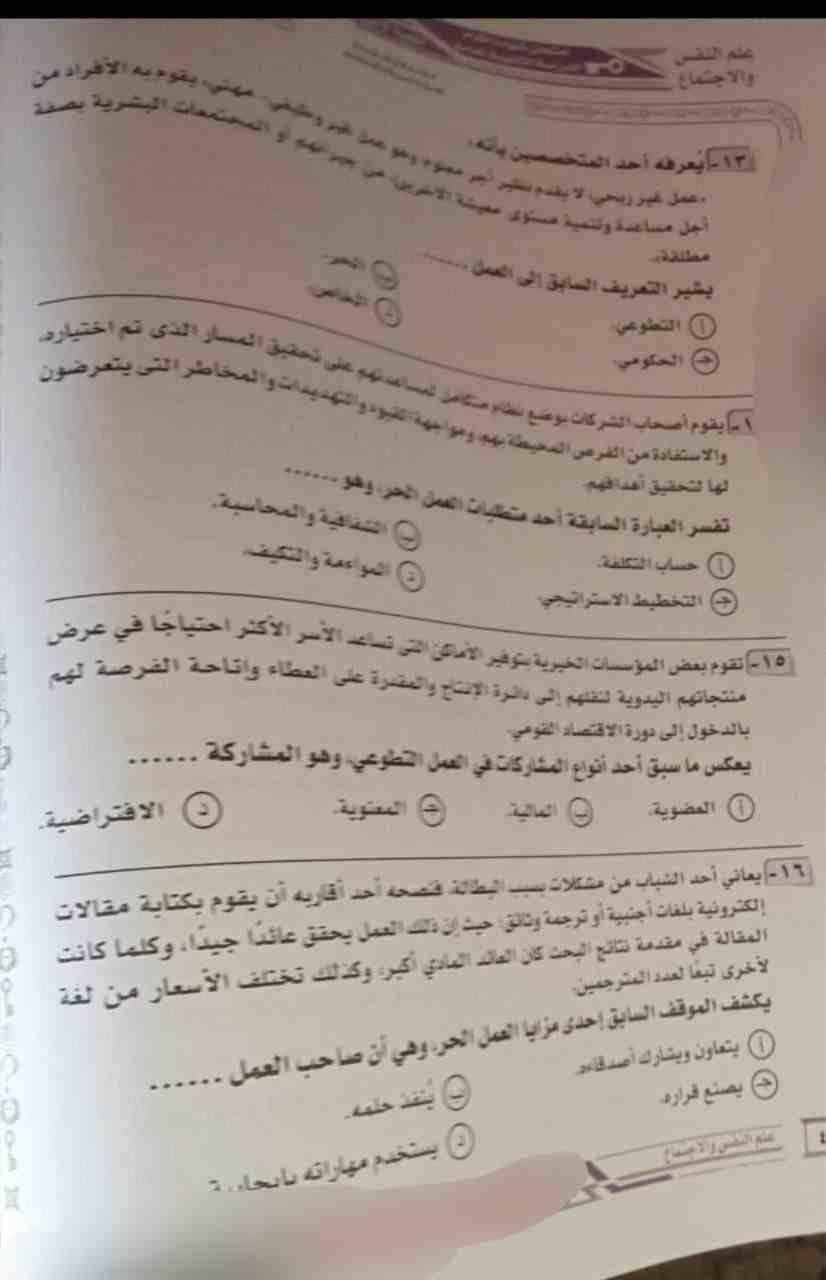 علم النفس
والاجتماع
١٣- يُعرفه أحد المتخصصين بأنه،
«عمل غير ربحي، لا يقدم نظير أجر معلوم، وهو عمل غير وظيفي - مهني، يقوم به الأفراد من
أجل مساعدة وتنمية مستوى معيشة الآخرين، من جيرانهم أو المجتمعات البشرية بصفة
مطلقة».
يشير التعريف السابق إلى العمل ......
أ التطوعي.
ب الحر.
جـ الحكومي.
د الخاص.
يقوم أصحاب الشركات بوضع نظام متكامل لمساعدتهم على تحقيق المسار الذى تم اختياره،
والاستفادة من الفرص المحيطة بهم، ومواجهة القيود والتهديدات والمخاطر التى يتعرضون
لها لتحقيق أهدافهم.
تفسر العبارة السابقة أحد متطلبات العمل الحر، وهو ......
أ حساب التكلفة.
ب الشفافية والمحاسبة.
جـ التخطيط الاستراتيجي.
د المواءمة والتكيف.
١٥- تقوم بعض المؤسسات الخيرية بتوفير الأماكن التى تساعد الأسر الأكثر احتياجًا في عرض
منتجاتهم اليدوية لنقلهم إلى دائرة الإنتاج والمقدرة على العطاء وإتاحة الفرصة لهم
بالدخول إلى دورة الاقتصاد القومي.
يعكس ما سبق أحد أنواع المشاركات في العمل التطوعي، وهو المشاركة ......
أ العضوية. ب المالية. جـ المعنوية. د الافتراضية.
١٦- يعاني أحد الشباب من مشكلات بسبب البطالة، فنصحه أحد أقاربه أن يقوم بكتابة مقالات
إلكترونية بلغات أجنبية أو ترجمة وثائق؛ حيث إن ذلك العمل يحقق عائدًا جيدًا، وكلما كانت
المقالة في مقدمة نتائج البحث كان العائد المادي أكبر، وكذلك تختلف الأسعار من لغة
لأخرى تبعًا لعدد المترجمين.
يكشف الموقف السابق إحدى مزايا العمل الحر، وهي أن صاحب العمل ......
أ يتعاون ويشارك أصدقاءه.
ب يُنفذ حلمه.
جـ يصنع قراره.
د يستخدم مهاراته بإيجابية
علم النفس والاجتماع